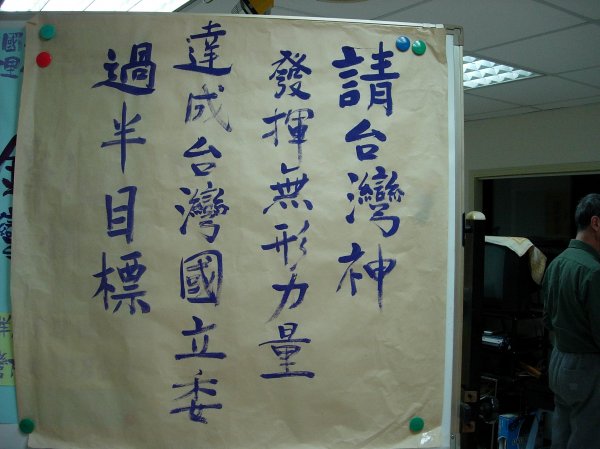 請台灣神
發揮無形力量
達成台灣國立委
過半目標
國